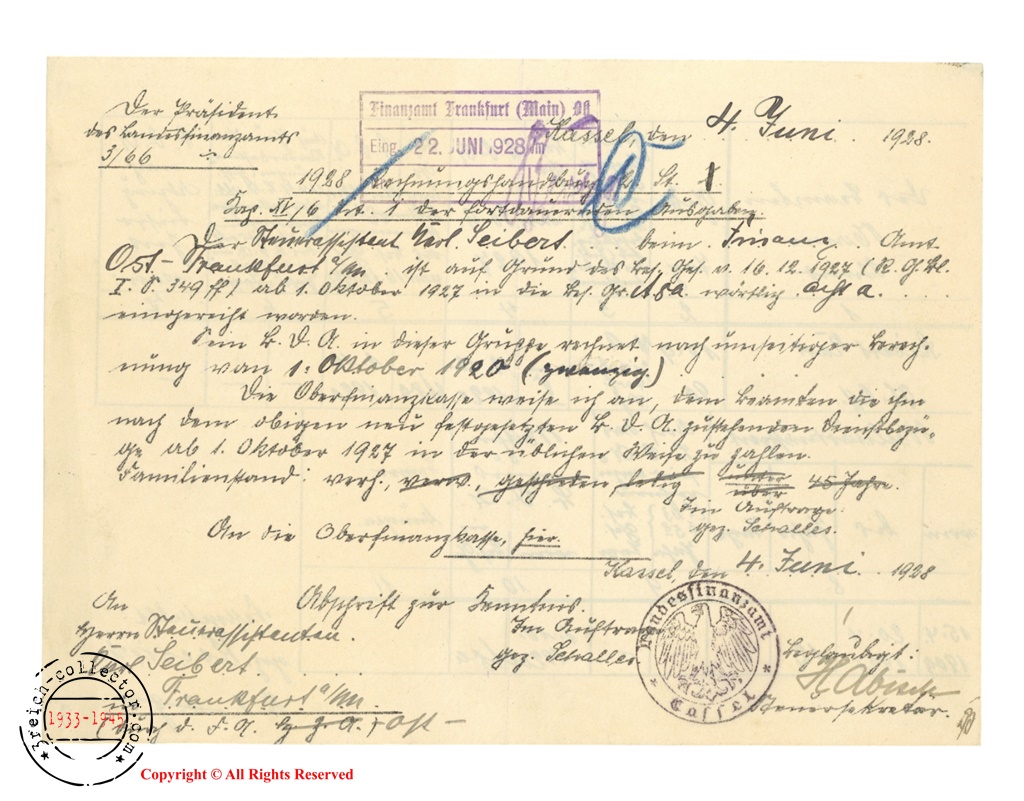 Der Präsident
des Landesfinanzamts
3/66
Finanzamt Frankfurt (Main) Ost
Eing. 22. JUNI 1928
Kassel, den 4. Juni 1928.
1928 Rechnungshandbuch St. 1
Kap. XV/6 Tit. 1 der fortdauernden Ausgaben.
Der Steuerassistent Karl Seibert beim Finanz Amt
Ost-Frankfurt a/M. ist auf Grund des Bes. Ges. v. 16.12.1927 (R.G.Bl.
I. S. 349 ff) ab 1. Oktober 1927 in die Bes. Gr. A 8a wörtlich acht a.
eingereiht worden.
Sein B. D. A. in dieser Gruppe rechnet nach umseitiger Berech-
nung vom 1. Oktober 1920 (zwanzig.)
Die Oberfinanzkasse weise ich an, dem Beamten die ihm
nach dem obigen neu festgesetzten B. D. A. zustehenden Dienstbezü-
ge ab 1. Oktober 1927 in der üblichen Weise zu zahlen.
Familienstand: verh., verw., geschieden, ledig unter über 45 Jahre.
Im Auftrage
gez. Schalles.
An die Oberfinanzkasse, hier.
Kassel, den 4. Juni 1928
An
Abschrift zur Kenntnis.
Herrn Steuerassistenten
Karl Seibert
in Frankfurt a/M.
(durch d. F. A. Ost-
Im Auftrage
gez. Schalles
Landesfinanzamt
Cassel
Beglaubigt:
Steuersekretär.
3reich-collector.com
1933-1945
Copyright © All Rights Reserved